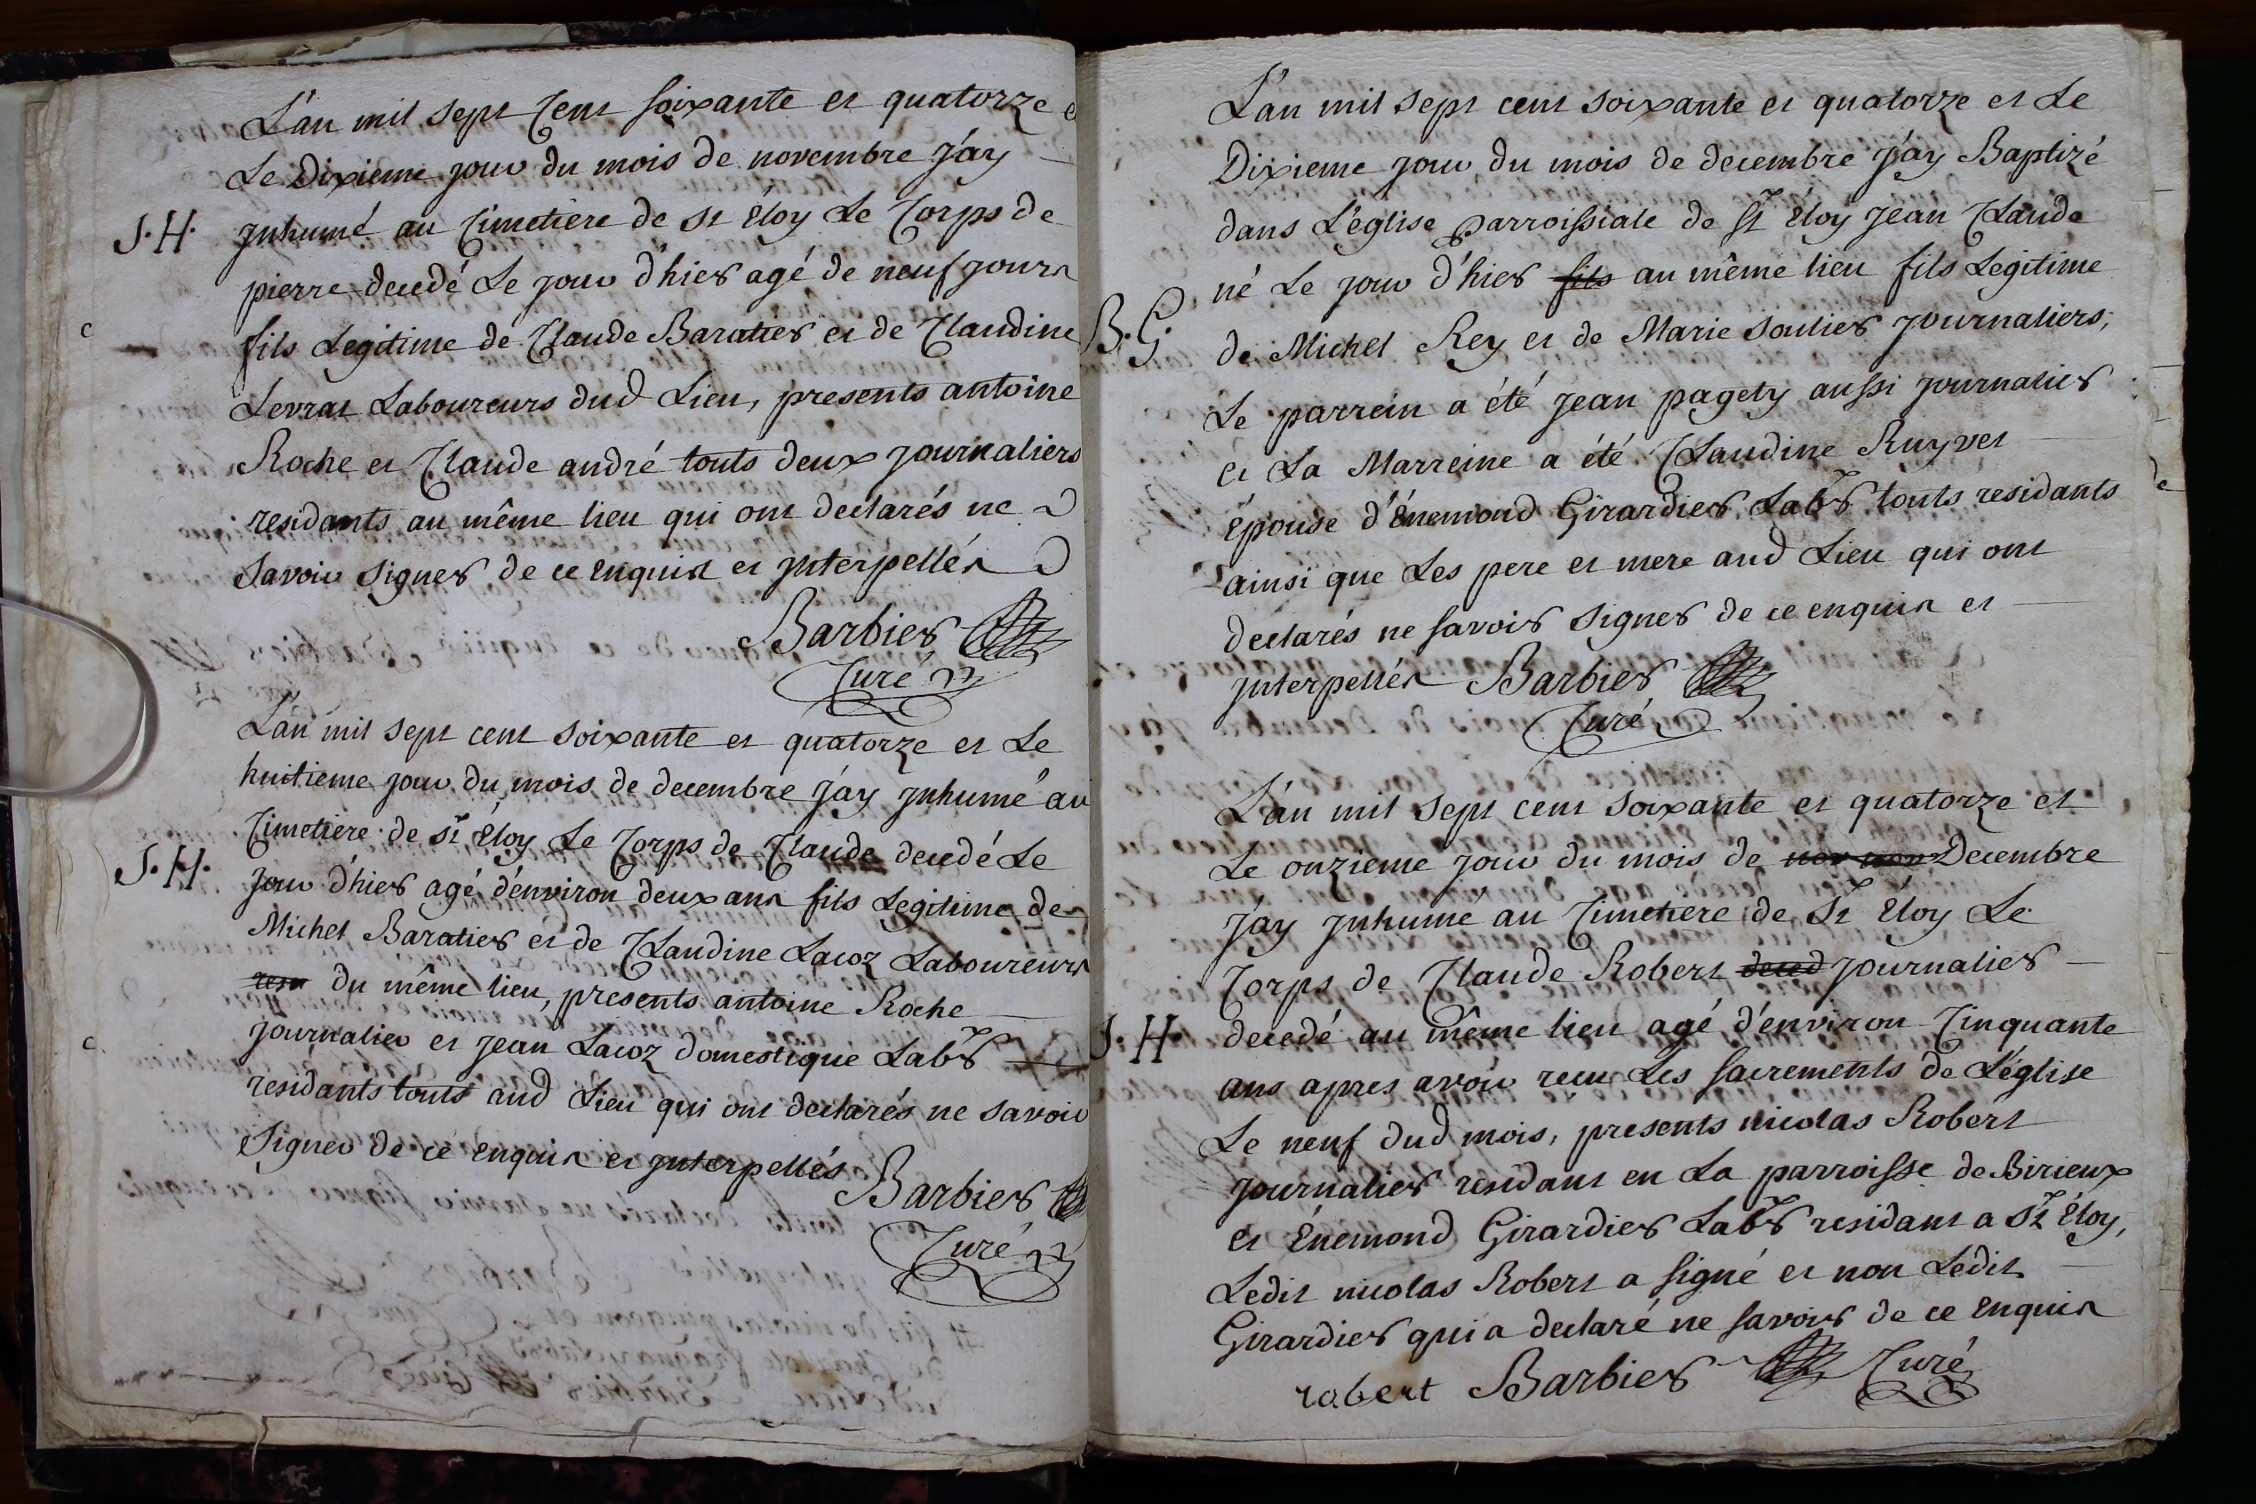 L'an mil sept Cent soixante et quatorze et
Le Dixieme jour du mois de novembre j'ay
S.H. jnhumé au Cimetiere de st Eloy Le Corps de
pierre decedé Le jour d'hier agé de neuf jours
fils Legitime de Claude Baratier et de Claudine
Levrat Laboureurs dud Lieu, presents antoine
Roche et Claude andré touts deux journaliers
residants au même lieu qui ont declarés ne
savoir signer de ce enquis et jnterpellés
Barbier
Curé
L'an mil sept cent soixante et quatorze et Le
huitieme jour du mois de decembre j'ay jnhumé au
Cimetiere de st Eloy Le Corps de Claude decedé Le
S.H. jour d'hier agé d'environ deux ans fils Legitime de
Michel Baratier et de Claudine Lacoz Laboureurs
du même lieu, presents antoine Roche
journalier et jean Lacoz domestique Labr
residants touts aud Lieu qui ont declarés ne savoir
signer de ce enquis et jnterpellés
Barbier
Curé
L'an mil sept cent soixante et quatorze et Le
Dixieme jour du mois de decembre j'ay Baptizé
dans L'église parroissiale de st Eloy jean Claude
né Le jour d'hier fils au même lieu fils Legitime
B.G. de Michel Rey et de Marie soulier journaliers,
Le parrein a été jean pagety aussi journalier
et La Marreine a été Claudine Ruyvet
Épouse d'Énemond Girardier Labr touts residants
ainsi que Les pere et mere aud Lieu qui ont
declarés ne savoir signer de ce enquis et
jnterpellés Barbier
Curé
L'an mil sept cent soixante et quatorze et
Le onzieme jour du mois de Decembre
j'ay jnhumé au Cimetiere de st Eloy Le
Corps de Claude Robert deced journalier
S.H decedé au même lieu agé d'environ Cinquante
ans apres avoir recu Les sacrements de L'église
Le neuf dud mois, presents nicolas Robert
journalier residant en La parroisse de Birieux
et Énemond Girardier Labr residant a st Éloy,
Ledit nicolas Robert a signé et non Ledit
Girardier qui a declaré ne savoir de ce enquis
robert Barbier Curé